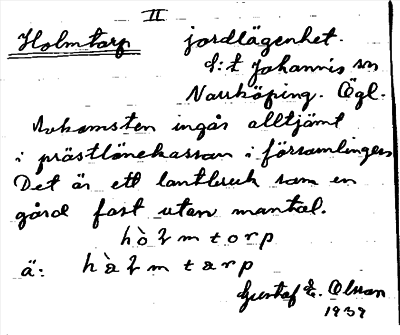 II
Holmtorp jordlägenhet.
S:t Johannis sn
Norrköping. Ögl.
Avkomsten ingår alltjämt
i prästlönekassan i församlingen
Det är ett lantbruk som en
gård fast utan mantal.
hòłmtorp
ä: hàłmtarp
Gustaf E. Olsson
1939